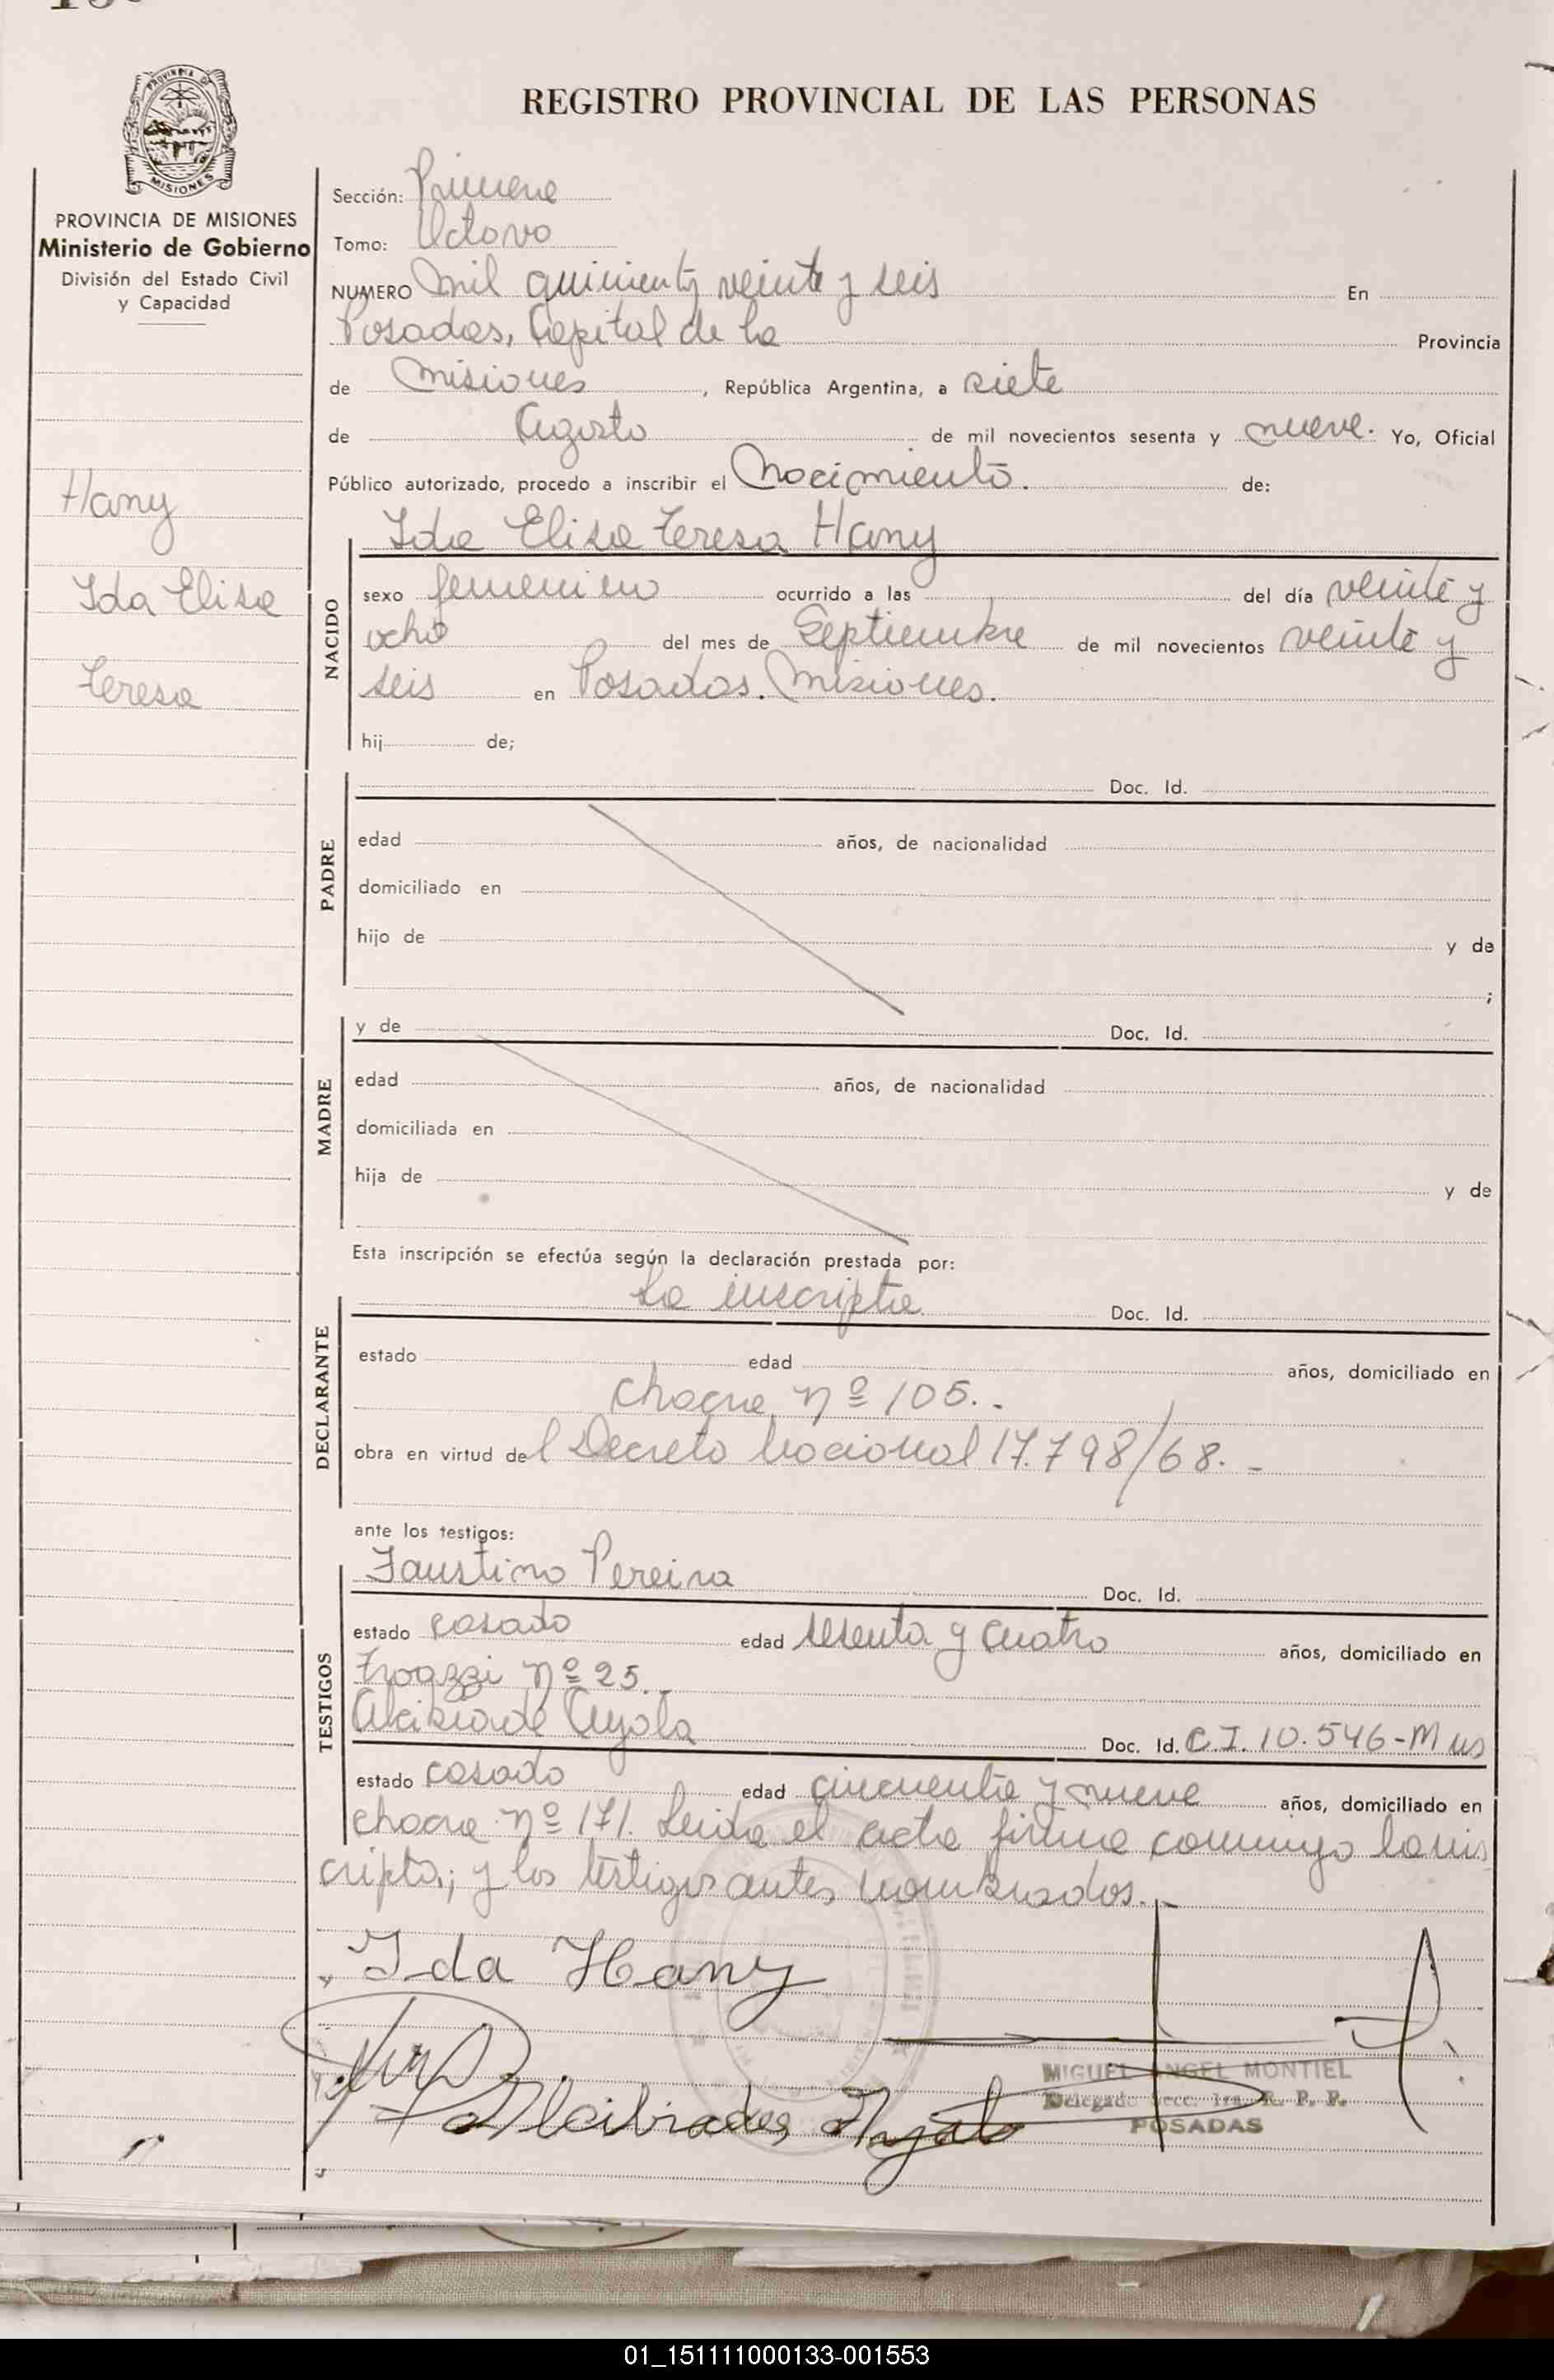 REGISTRO PROVINCIAL DE LAS PERSONAS
PROVINCIA DE MISIONES
PROVINCIA DE MISIONES
Ministerio de Gobierno
División del Estado Civil
y Capacidad
Hany
Ida Elisa
Teresa
Sección: Primera
Tomo: Octavo
NUMERO Mil quinientos veinte y seis En
Posadas, Capital de la Provincia
de Misiones, República Argentina, a siete
de Agosto de mil novecientos sesenta y nueve. Yo, Oficial
Público autorizado, procedo a inscribir el Nacimiento. de:
NACIDO
Ida Elisa Teresa Hany
sexo femenino ocurrido a las del día veinte y
ocho del mes de Septiembre de mil novecientos veinte y
seis en Posadas. Misiones.
hij de;
PADRE
Doc. Id.
edad años, de nacionalidad
domiciliado en
hijo de y de
;
MADRE
y de Doc. Id.
edad años, de nacionalidad
domiciliada en
hija de y de
Esta inscripción se efectúa según la declaración prestada por:
DECLARANTE
La inscripta Doc. Id.
estado edad años, domiciliado en
nº 105..
obra en virtud del Decreto Nacional 17.798/68. -
ante los testigos:
TESTIGOS
Faustino Pereira Doc. Id.
estado casado edad sesenta y cuatro años, domiciliado en
nº 25.
Alcibiade Ayala Doc. Id. C.I. 10.546-M
estado casado edad cincuenta y nueve años, domiciliado en
nº 171. Leida el acta firma conmigo la ins
cripta; y los testigos antes nombrados. -
Ida Hany
Alcibiades Ayala
MIGUEL ANGEL MONTIEL
Delegado Secc. 1ra. R. P. P.
POSADAS
01_151111000133-001553